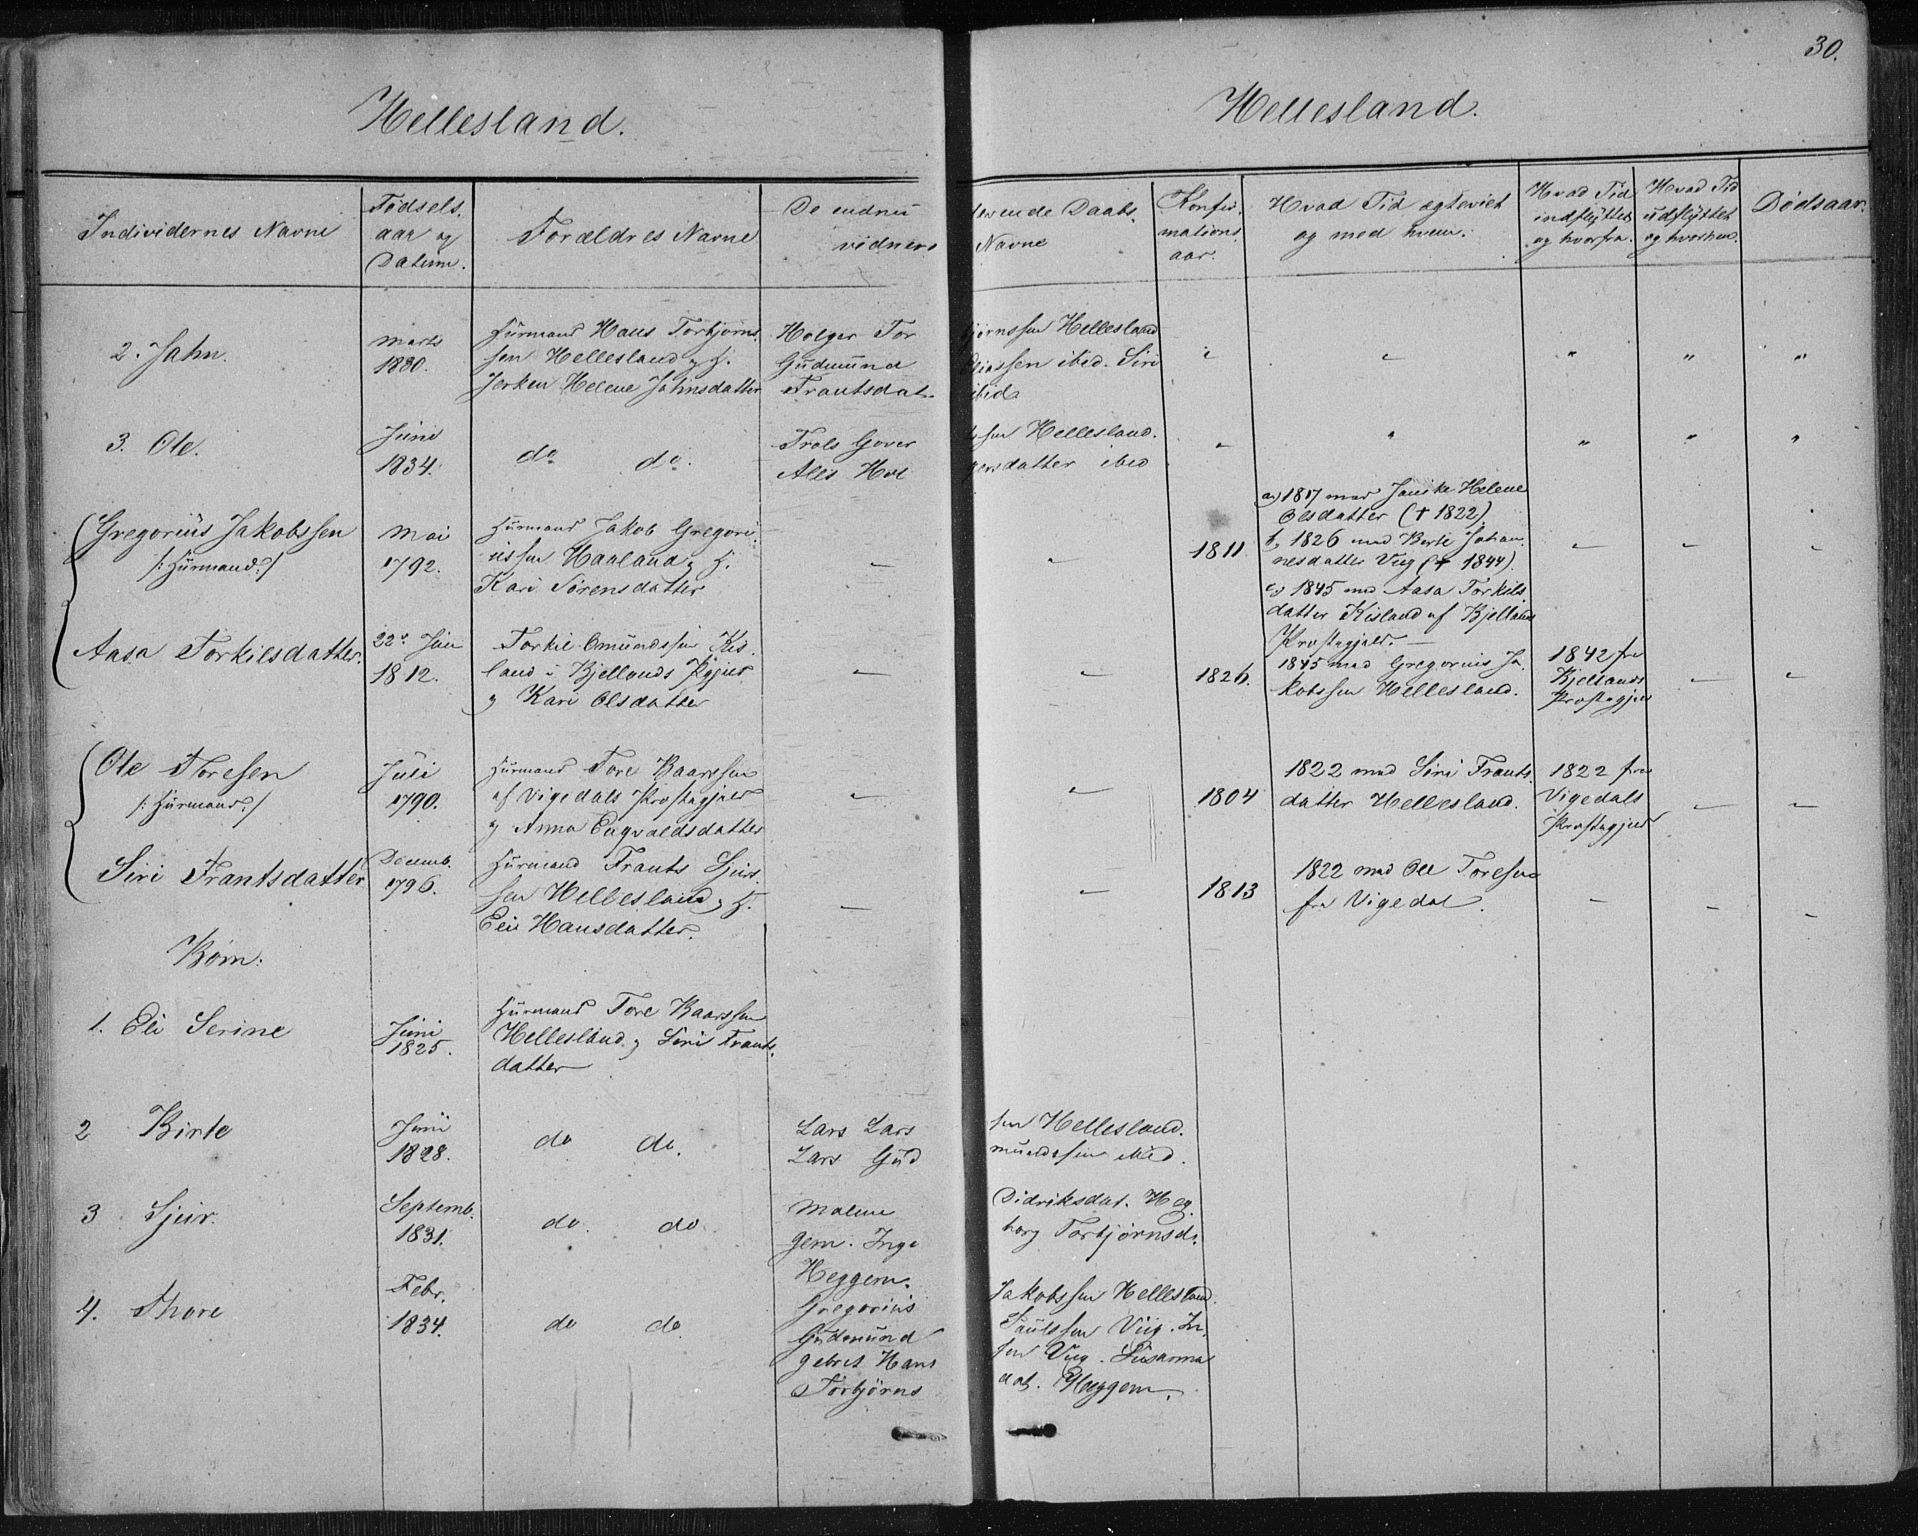 30.
Hellesland.
Hellesland.
Individernes Navne
Fødsels,
aar og
Datum.
Forældres Navne
De endnu
vidners
levende Daabs,
Navne
Konfir,
mations,
aar.
Hvad Tid ægteviet
og med hvem.
Hvad Tid
indflyttet
og hvorfra.
Hvad Tid
udflyttet
og hvorhen.
Dødsaar.
2. Jahn.
Marts
1830.
Huusmand Hans Torbjørns,
sen Hellesland og H.
Helene Jahnsdatter
Holger Tor
Gudmund
Frantsdat.
bjørnssen Hellesland
ssen ibid. Siri
ibid.
" " " " "
3. Ole.
Juni
1834.
do do.
Trols Gover
Ales Hol
tssen Hellesland.
gersdatter ibid
" " " " "
Gregorius Jakobssen
/: Huusmand :/
Mai
1792.
Huusmand Jakob Gregori,
ussen Haaland og H.
Kari Sørensdatter
– –
1811
a) 1817 med Janike Helene
Olsdatter († 1822).
b, 1826 med Berte Johan,
nesdatter Vug († 1844).
c) 1845 med Aasa Torkils,
datter Kisland af Bjellands
Præstegjeld. –
– – –
Aasa Torkilsdatter.
22de Juni
1812.
Torkil Omundssen Kis,
land i Bjellands Pgjeld
og Kari Olsdatter
– –
1826.
1845 med Gregorius Ja,
kobssen Hellesland.
1842 fra
Bjellands
Præstegjeld
– –
Ole Toresen
/: Huusmand :/
Juli
1790.
Huusmand Tore Baarssen
af Vigedals Præstegjeld
og Anna Engvaldsdatter
– –
1804
1822 med Siri Frants,
datter Hellesland.
1822 fra
Vigedals
Præstegjeld
– –
Siri Frantsdatter
Decemb.
1796.
Huusmand Frants Sjurs,
sen Hellesland og H.
Elii Hansdatter.
– –
1813
1822 med Ole Toresen
fra Vigedal.
– – –
Børn:
1. Eli Serine
Juni
1825.
Huusmand Tore Baarssen
Hellesland og Siri Frants,
datter
2 Birte
Juni
1828.
do do.
Lars Lars
Lars Gud
sen Hellesland.
mundssen ibid.
3 Sjur.
Septemb.
1831.
do. do
Malene
gem. Inge
Didriksdat. Heg,
borg Torbjørnsd.
Heggem.
4. Thore
Febr.
1834.
do do.
Gregorius
Gudmund
gebret Hans
Torbjørns
Jakobssen Hellesland.
Paulssen Vug. In,
sen Vug. Susanna
dat. Heggem.